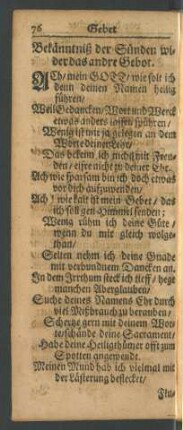 76 Gebet
Bekänntniß der Sünden wi-
der das andre Gebot.
ACh/ mein GOTT/ wie solt ich
denn deinen Namen heilig
führen/
Weil Gedancken/ Wort und Werck
etwas anders lassen spühren/
Wenig ist mir ja gelegen an dem
Worte deiner Lehr/
Das bekenn ich nicht mit Freu-
den/ eifre nicht zu deiner Ehr.
Ach wie sparsam bin ich doch etwas
vor dich aufzuwenden/
Ach! wie kalt ist mein Gebet/ das
ich soll gen Himmel senden;
Wenig rühm ich deine Güte/
wenn du mir gleich wolge-
than/
Selten nehm ich deine Gnade
mit verbundnem Dancken an.
In dem Irrthum steck ich tieff/ hege
mancherley Aberglauben/
Suche deines Namens Ehr durch
viel Mißbrauch zu berauben/
Scherze gern mit deinem Wor-
te/ schände deine Sacrament/
Habe deine Heiligthümer offt zum
Spotten angewendt.
Meinen Mund hab ich vielmal mit
der Lästerung beflecket/